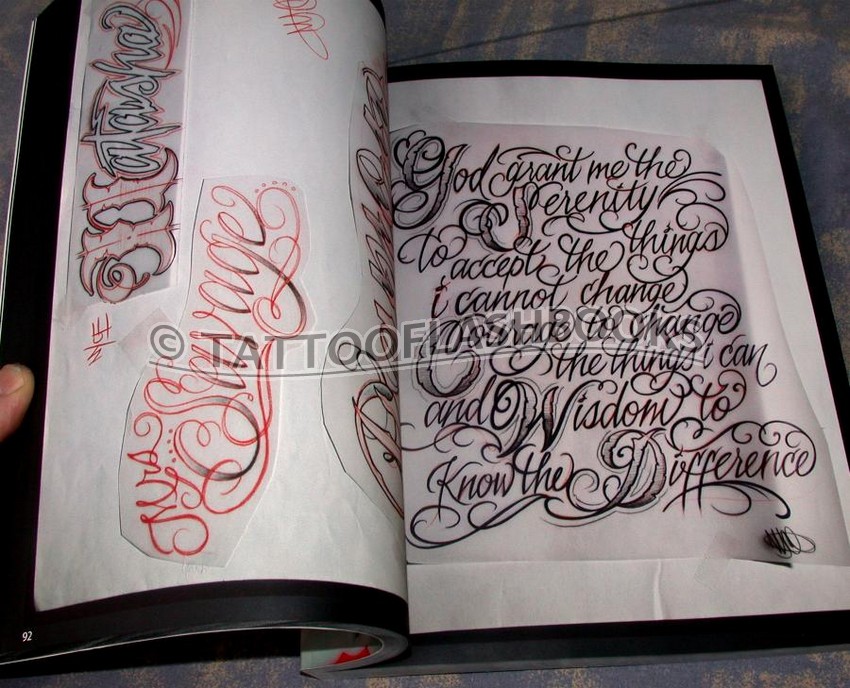 Natasha
Mrs. Savage
92
God grant me the
Serenity
to accept the things
i cannot change
Courage to change
the things i can
and Wisdom to
Know the Difference
© TATTOOFLASHBOOKS